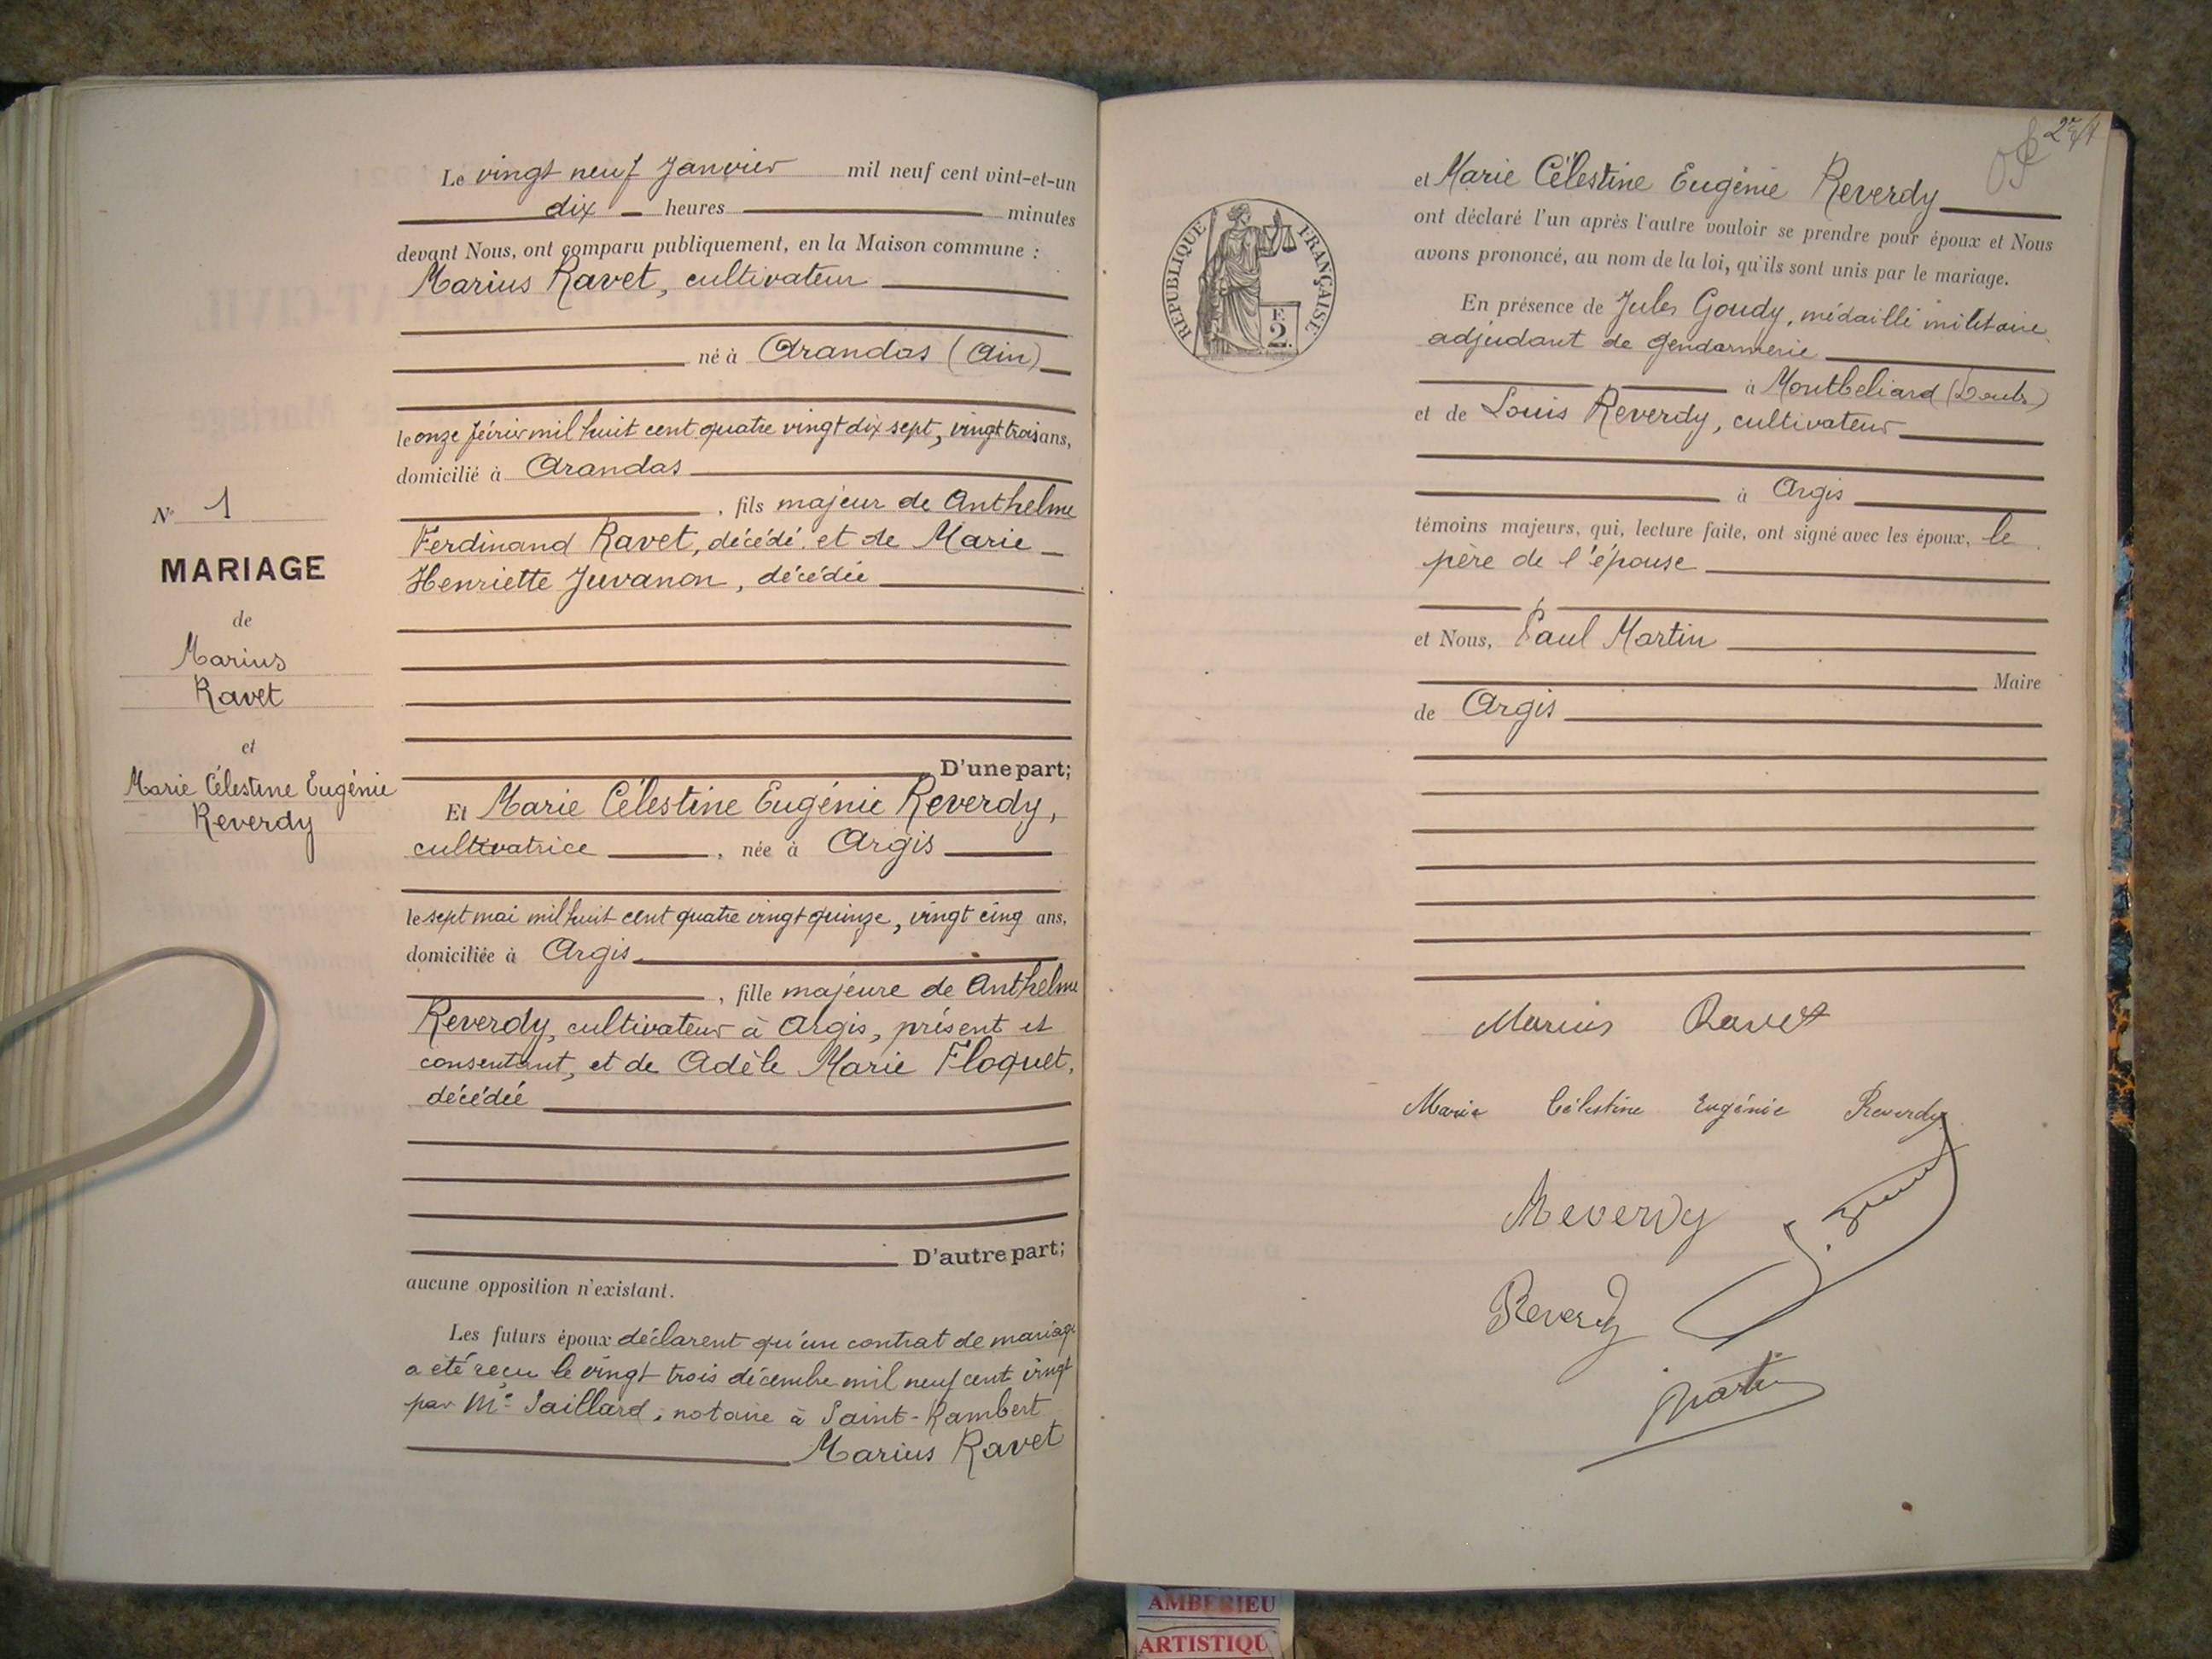 Le vingt neuf Janvier mil neuf cent vint-et-un
dix heures minutes
devant Nous, ont comparu publiquement, en la Maison commune :
Marius Ravet, cultivateur
né à Arandas (Ain)
le onze février mil huit cent quatre vingt dix sept, vingt trois ans,
domicilié à Arandas
, fils majeur de Anthelme
Ferdinand Ravet, décédé et de Marie
Henriette Juvanon, décédée
D'une part;
Et Marie Célestine Eugénie Reverdy,
cultivatrice , née à Argis
le sept mai mil huit cent quatre vingt quinze, vingt cinq ans,
domiciliée à Argis
, fille majeure de Anthelme
Reverdy, cultivateur à Argis, présent et
consentant, et de Adèle Marie Floquet,
décédée
D'autre part;
aucune opposition n'existant.
Les futurs époux déclarent qu'un contrat de mariage
a été reçu le vingt trois décembre mil neuf cent vingt
par Me Saillard, notaire à Saint-Rambert
Marius Ravet
N° 1
MARIAGE
de
Marius
Ravet
et
Marie Célestine Eugénie
Reverdy
RÉPUBLIQUE FRANÇAISE
F.
2.
et Marie Célestine Eugénie Reverdy
ont déclaré l'un après l'autre vouloir se prendre pour époux et Nous
avons prononcé, au nom de la loi, qu'ils sont unis par le mariage.
En présence de Jules Goudy, médaillé militaire,
adjudant de gendarmerie
à Montbeliard (Doubs)
et de Louis Reverdy, cultivateur
à Argis
témoins majeurs, qui, lecture faite, ont signé avec les époux, le
père de l'épouse
et Nous, Paul Martin
Maire
de Argis
Marius Ravet
Marie Célestine Eugénie Reverdy
Reverdy
Reverdy
Martin
AMBERIEU
ARTISTIQU